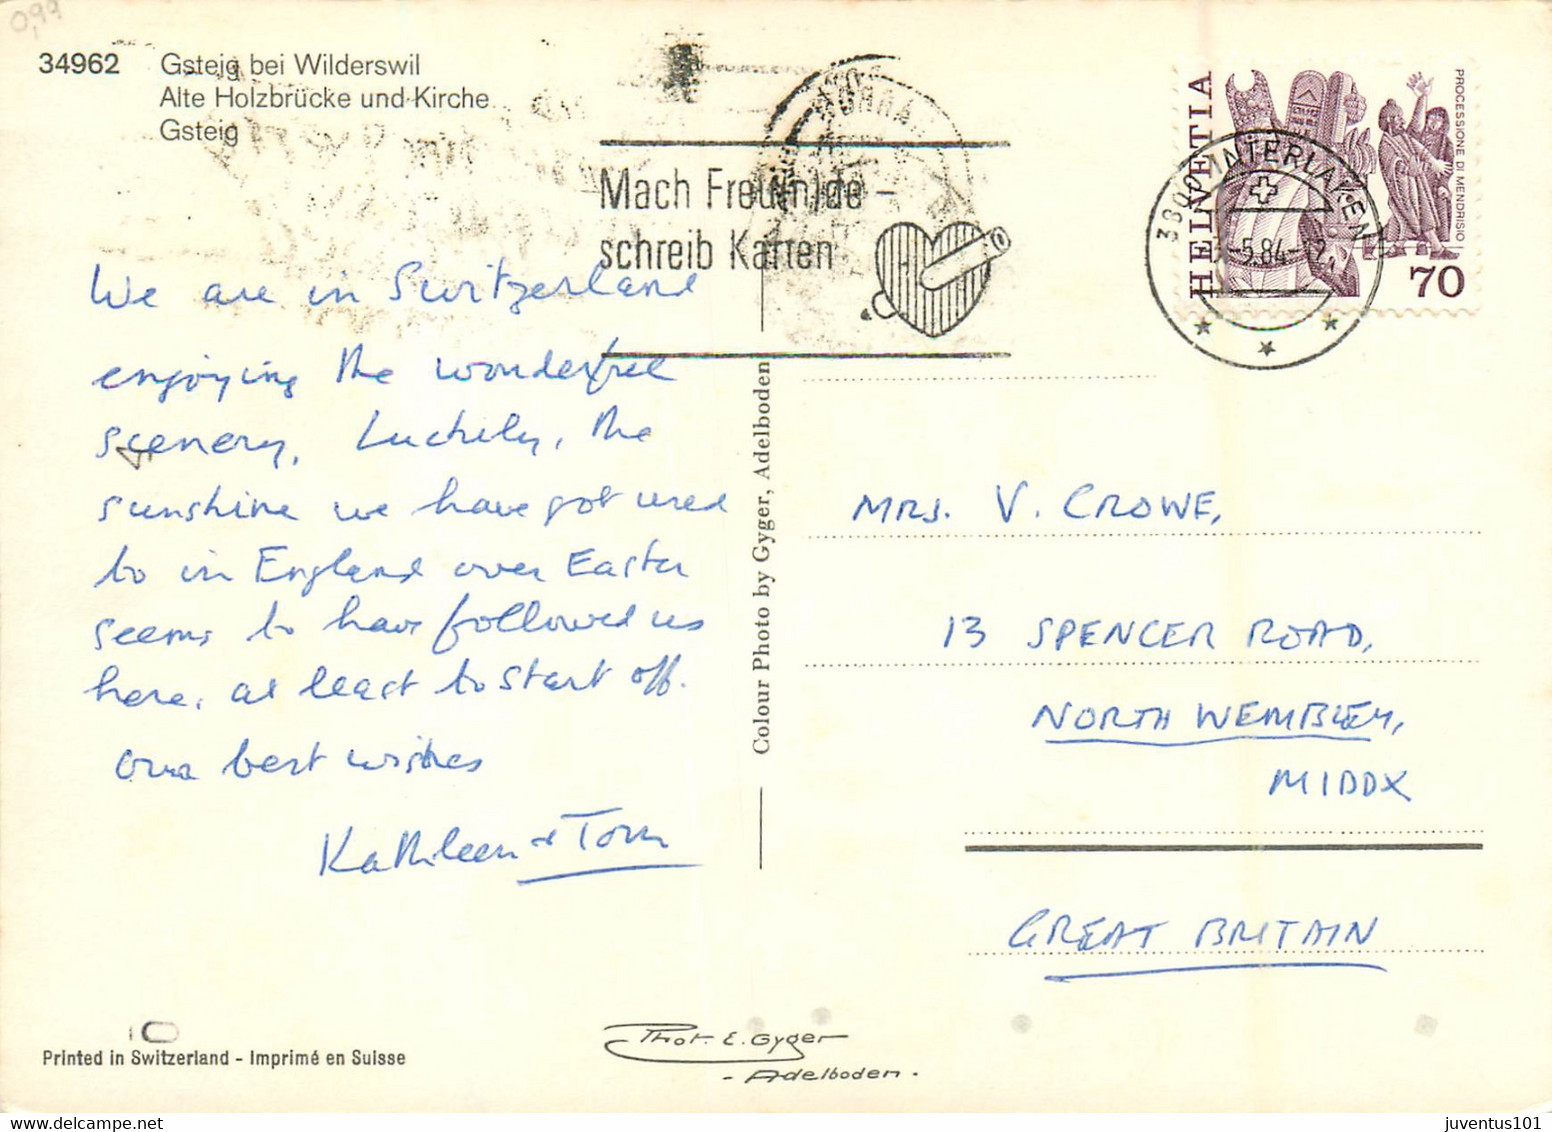 0,99
34962 Gsteig bei Wilderswil
Alte Holzbrücke und Kirche
Gsteig
Mach Freu(n)de -
schreib Karten
HELVETIA
PROCESSIONE DI MENDRISIO
70
3800 INTERLAKEN
-5.84-
We are in Switzerland
enjoying the wonderful
scenery. Luckily, the
sunshine we have got used
to in England over Easter
seems to have followed us
here, at least to start off.
Our best wishes
Kathleen & Tom
Colour Photo by Gyger, Adelboden
MRS. V. CROWE,
13 SPENCER ROAD,
NORTH WEMBLEY,
MIDDX
GREAT BRITAIN
Printed in Switzerland - Imprimé en Suisse
Phot. E. Gyger
- Adelboden -
juventus101